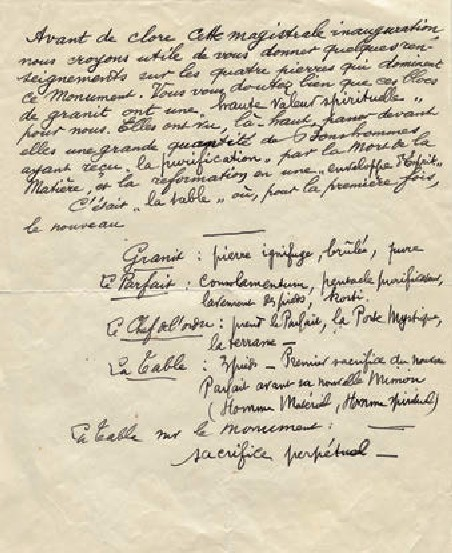 Avant de clore cette magistrale inauguration,
nous croyons utile de vous donner quelques ren-
seignements sur les quatre pierres qui dominent
ce Monument. Vous vous doutez bien que ces blocs
de granit ont une "haute valeur spirituelle"
pour nous. Elles ont vu, là haut, passer devant
elles une grande quantité de Bonshommes
ayant reçu "la purification" par la Mort de la
Matière, et la reformation en une "enveloppe Esprit"
C'était "la table" où, pour la première fois,
le nouveau
Granit : pierre ignifuge, brûlés, pure
Le Parfait : consolamentum, pentacle purificateur,
lavement des pieds,
Le Chef de l'ordre : le Parfait, la Porte Mystique,
la terrasse —
La Table : 3 pieds — Premier sacrifice du nouveau
Parfait avant sa nouvelle Mission
(Homme Matériel, Homme spirituel)
La Table sur le monument :
sacrifice perpétuel —